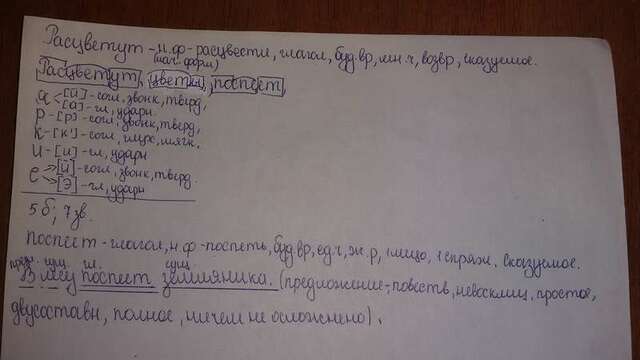 Расцветут - н.ф - расцвести, глагол, буд.вр, мн.ч, возвр, сказуемое.
(нач. форма)
Расцветут, цветы, поспеет,
я < [й] - согл, звонк, тверд,
[а] - гл, ударн.
р - [р] - согл, звонк, тверд,
к - [к'] - согл, глух, мягк.
и - [и] - гл, ударн
е → [й] - согл, звонк, тверд.
→ [э] - гл, ударн
5 б, 7 зв.
поспеет - глагол, н.ф - поспеть, буд.вр, ед.ч, ж.р, 1 лицо, 1 спряж. Сказуемое.
предл. сущ. гл. сущ.
В мае поспеет земляника. (предложение, повеств, невосклиц, простое,
двусоставн, полное, ничем не осложнено).